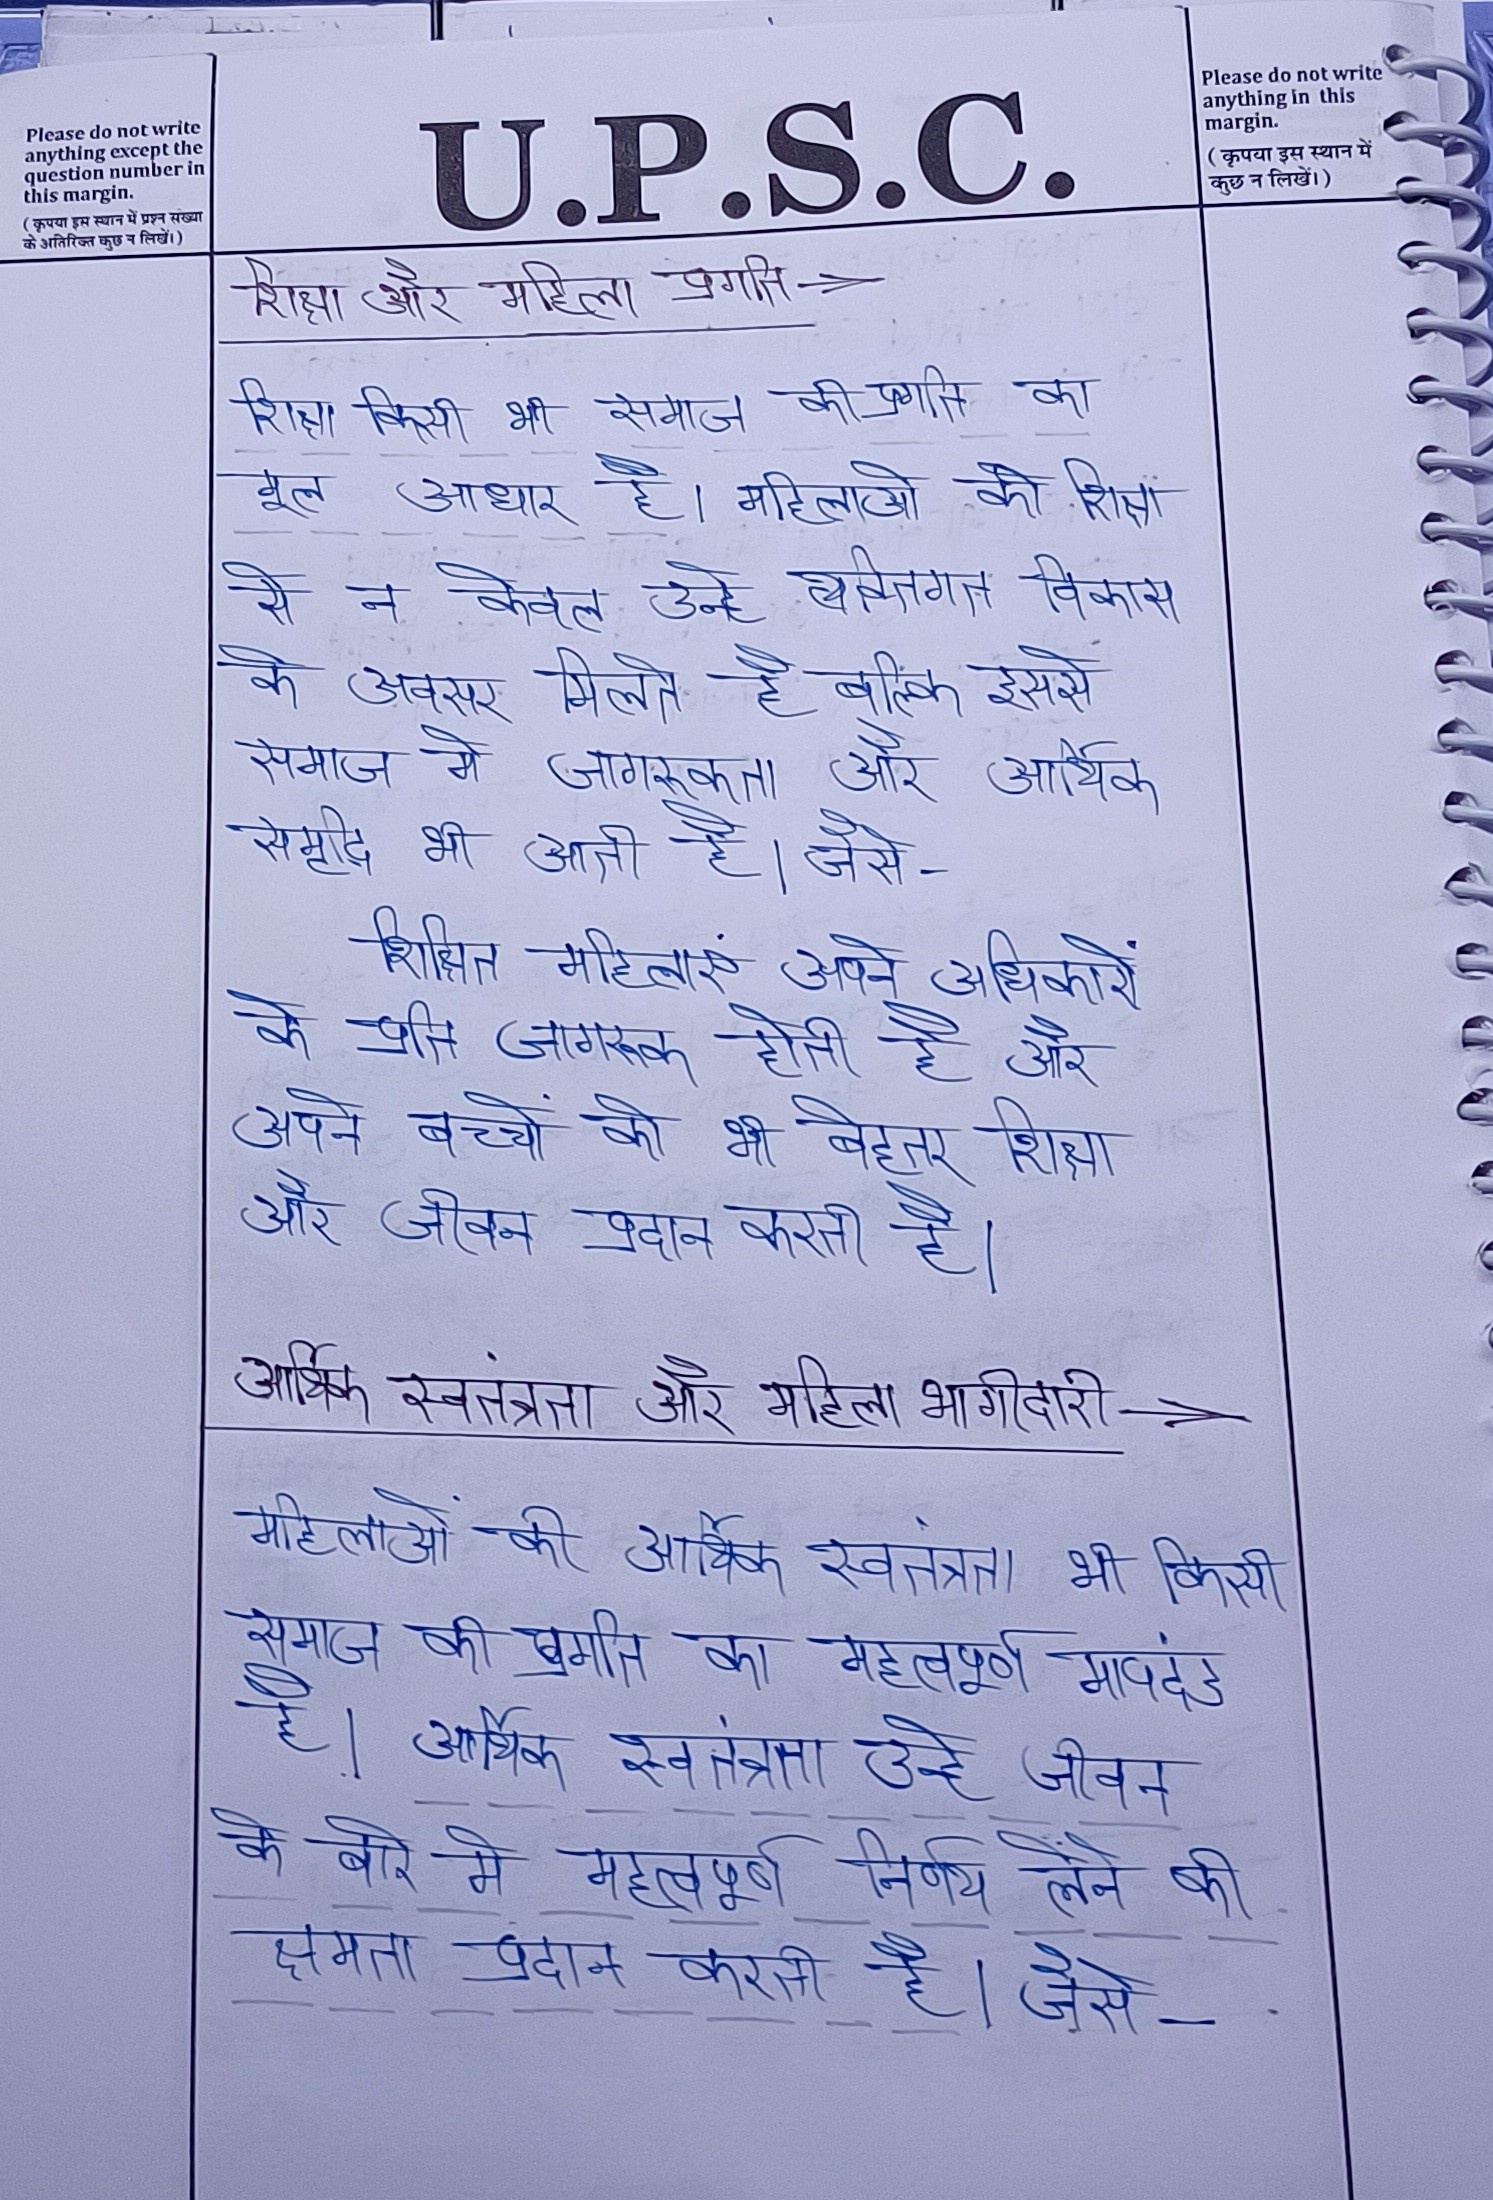 Please do not write
anything except the
question number in
this margin.
(कृपया इस स्थान में प्रश्न संख्या
के अतिरिक्त कुछ न लिखें।)
U.P.S.C.
Please do not write
anything in this
margin.
(कृपया इस स्थान में
कुछ न लिखें।)
शिक्षा और महिला प्रगति →
शिक्षा किसी भी समाज की प्रगति का
मूल आधार है। महिलाओ को शिक्षा
से न केवल उन्हे व्यक्तिगत विकास
के अवसर मिलते है बल्कि इससे
समाज मे जागरूकता और आर्थिक
समृद्धि भी आती है। जैसे-
शिक्षित महिलाएं अपने अधिकारों
के प्रति जागरूक होती है और
अपने बच्चों को भी बेहतर शिक्षा
और जीवन प्रदान करती है।
आर्थिक स्वतंत्रता और महिला भागीदारी →
महिलाओं की आर्थिक स्वतंत्रता भी किसी
समाज की प्रगति का महत्वपूर्ण मापदंड
है। आर्थिक स्वतंत्रता उन्हे जीवन
के बारे मे महत्वपूर्ण निर्णय लेने की
क्षमता प्रदान करती है। जैसे-